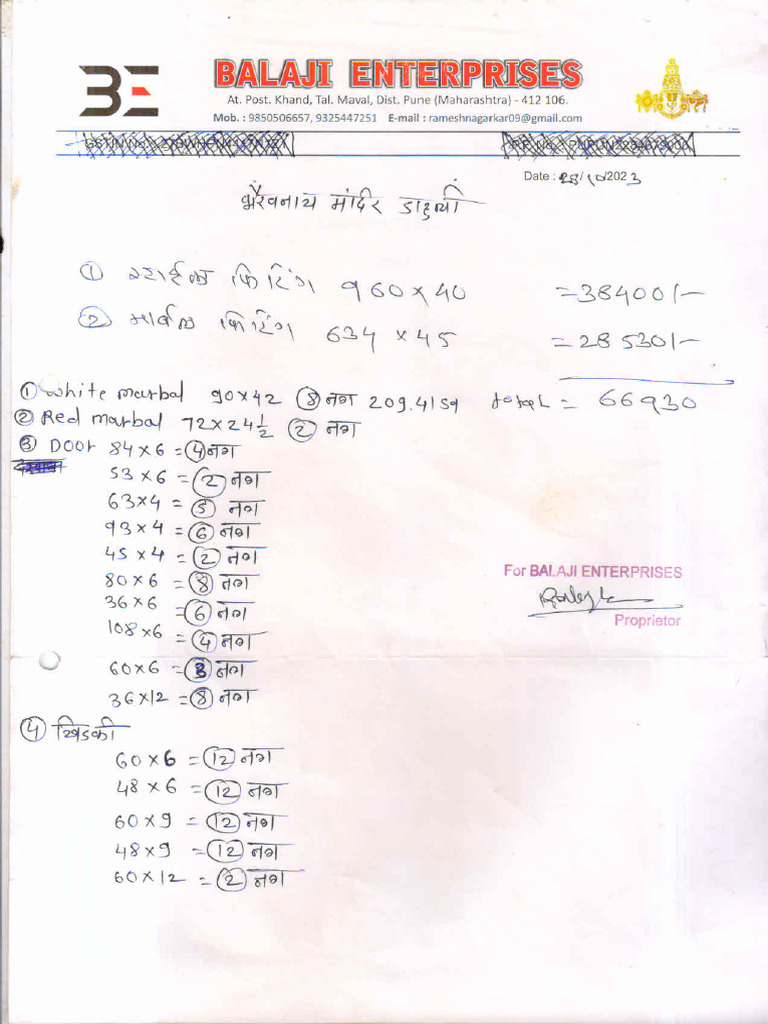 BE
BALAJI ENTERPRISES
At. Post. Khand, Tal. Maval, Dist. Pune (Maharashtra) - 412 106.
Mob. : 9850506657, 9325447251 E-mail : rameshnagarkar09@gmail.com
Date : 28/10/2023
भैरवनाथ मंदिर
① स्टाईल फिटिंग 960 x 40 = 38400/-
② मार्बल फिटिंग 634 x 45 = 28530/-
① White marbal 90 x 42 ⑧ नग 209.4159 total = 66930
② Red marbal 72 x 24½ ② नग
③ Door 84 x 6 = ④ नग
53 x 6 = ② नग
63 x 4 = ⑤ नग
93 x 4 = ⑥ नग
45 x 4 = ② नग
80 x 6 = ⑧ नग
36 x 6 = ⑥ नग
108 x 6 = ④ नग
60 x 6 = नग
36 x 12 = ⑧ नग
④ खिडकी
60 x 6 = ⑫ नग
48 x 6 = ⑫ नग
60 x 9 = ⑫ नग
48 x 9 = ⑫ नग
60 x 12 = ② नग
For BALAJI ENTERPRISES
Proprietor